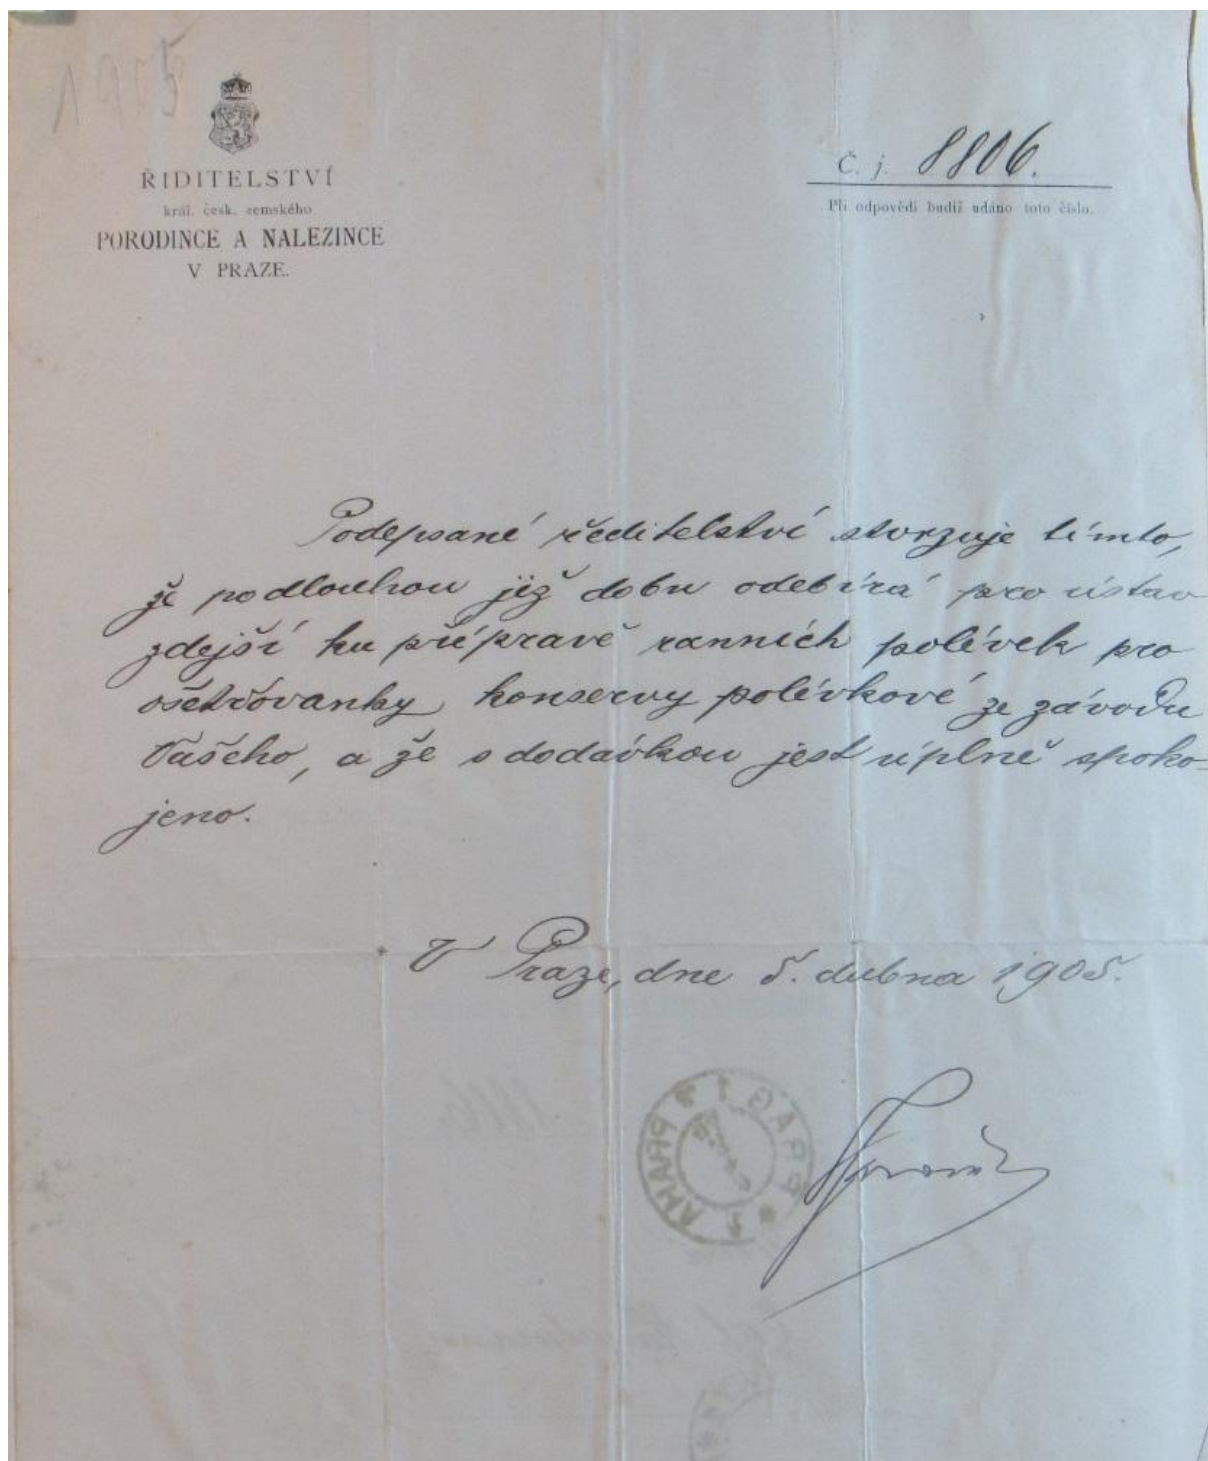 1905
ŘIDITELSTVÍ
král. česk. zemského
PORODINCE A NALEZINCE
V PRAZE.
Č. j. 8806.
Při odpovědi budiž udáno toto číslo.
Podepsané ředitelství stvrzuje tímto,
že po dlouhou již dobu odebírá pro ústav
zdejší ku přípravě ranních polévek pro
ošetřovanky konservy polévkové ze závodu
Vašeho, a že s dodávkou jest úplně spoko-
jeno.
V Praze, dne 5. dubna 1905.
PRAG 1 * PRAHA 1 *